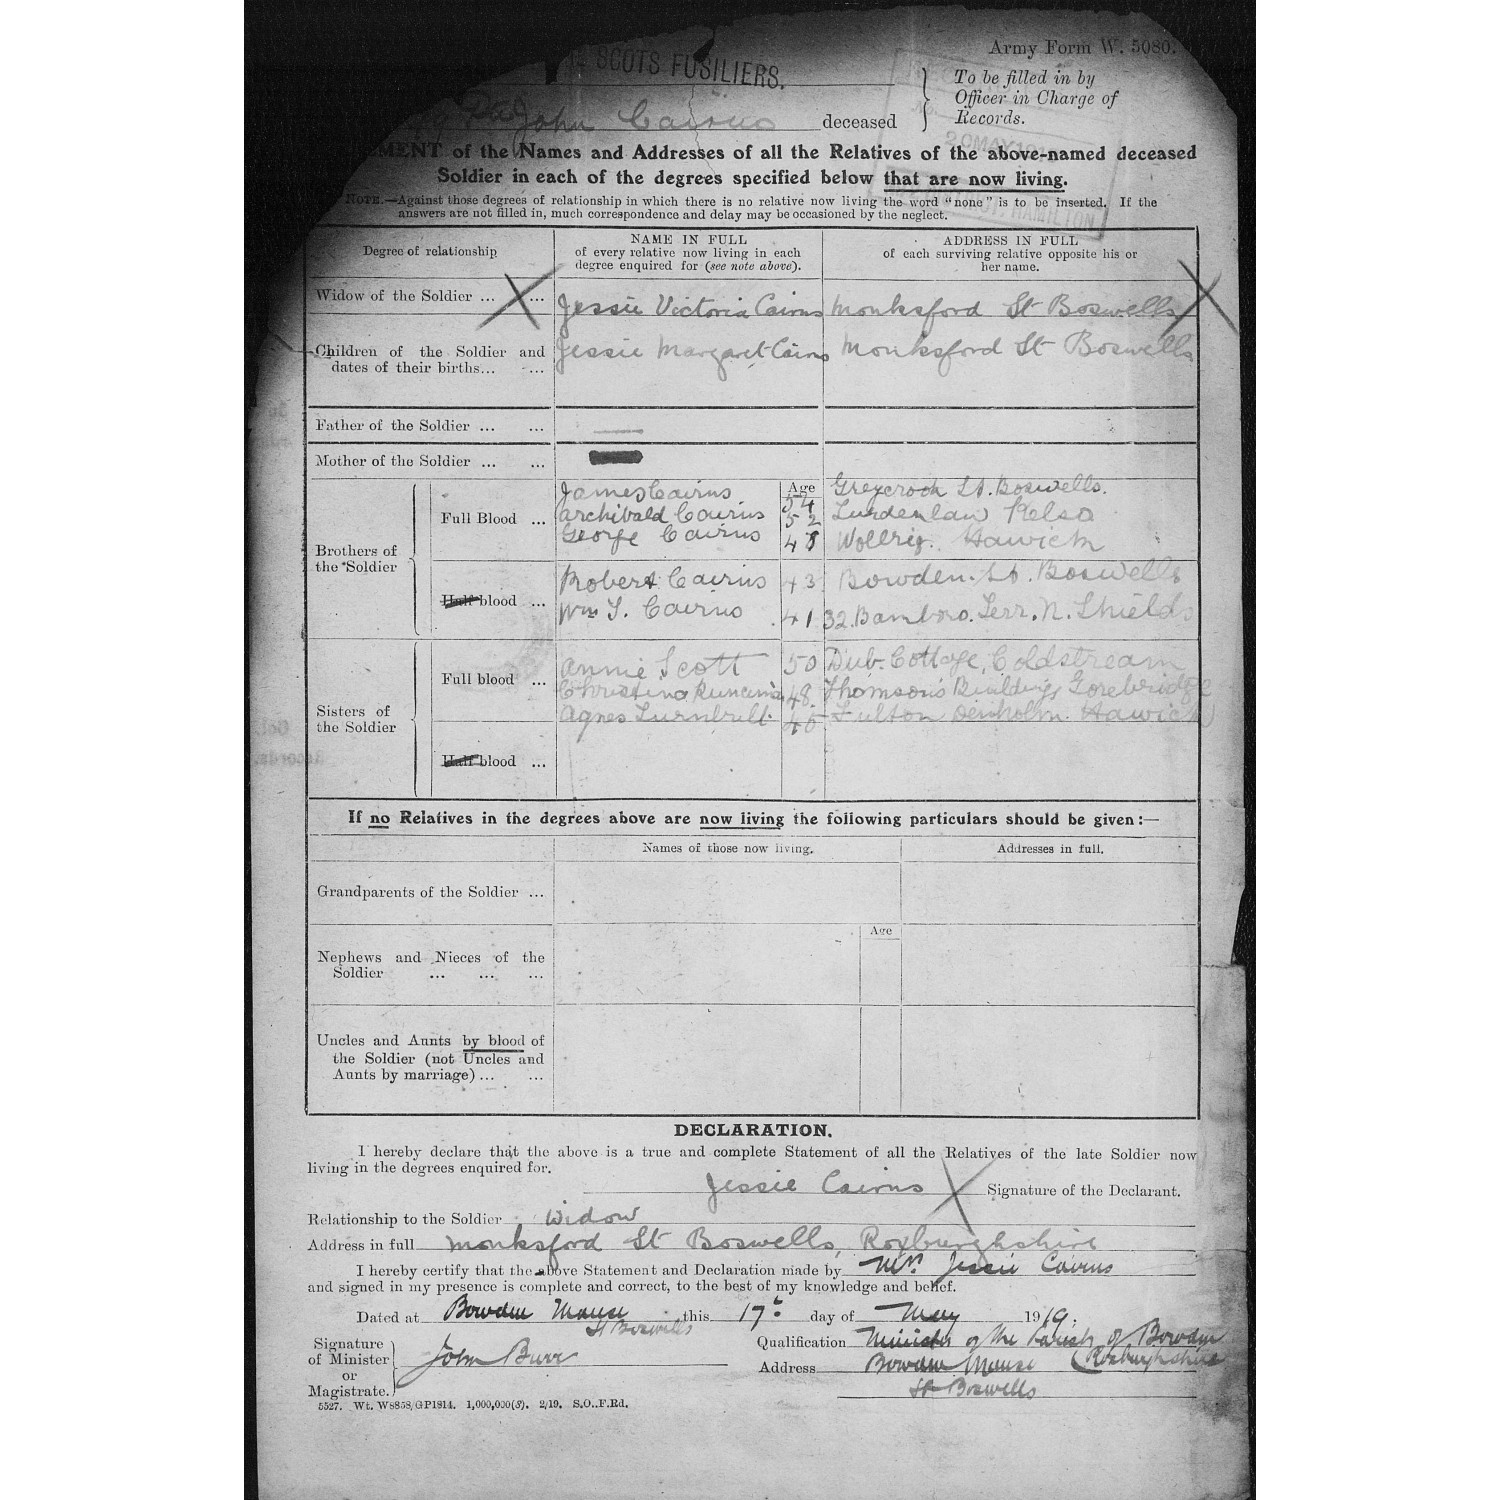 SCOTS FUSILIERS.
Army Form W. 5080.
To be filled in by
Officer in Charge of
Records.
John Cairns deceased
20 MAY 191
HAMILTON
MENT of the Names and Addresses of all the Relatives of the above-named deceased
Soldier in each of the degrees specified below that are now living.
NOTE.—Against those degrees of relationship in which there is no relative now living the word "none" is to be inserted. If the
answers are not filled in, much correspondence and delay may be occasioned by the neglect.
Degree of relationship
NAME IN FULL
of every relative now living in each
degree enquired for (see note above).
ADDRESS IN FULL
of each surviving relative opposite his or
her name.
Widow of the Soldier ... ... Jessie Victoria Cairns Monksford St Boswells
Children of the Soldier and
dates of their births... ... Jessie Margaret Cairns Monksford St Boswells
Father of the Soldier ... ...
Mother of the Soldier ... ...
Age
Brothers of
the Soldier
Full Blood ...
James Cairns 54 Greycrook St. Boswells.
Archibald Cairns 52 Lurdenlaw Kelso
George Cairns 48 Wollrig. Hawick
Half blood ...
Robert Cairns 43 Bowden. St. Boswells
Wm T. Cairns 41 32. Bamboro. Terr. N. Shields
Sisters of
the Soldier
Full blood ...
Annie Scott 50 Dub. Cottage, Coldstream
Christina Runciman 48. Thomson's Buildings Gorebridge
Agnes Turnbull. 45 Fulton Denholm. Hawick
Half blood ...
If no Relatives in the degrees above are now living the following particulars should be given:—
Names of those now living. Addresses in full.
Grandparents of the Soldier ...
Age
Nephews and Nieces of the
Soldier ... ... ...
Uncles and Aunts by blood of
the Soldier (not Uncles and
Aunts by marriage) ... ...
DECLARATION.
I hereby declare that the above is a true and complete Statement of all the Relatives of the late Soldier now
living in the degrees enquired for.
Jessie Cairns Signature of the Declarant.
Relationship to the Soldier Widow
Address in full Monksford St Boswells, Roxburghshire
I hereby certify that the above Statement and Declaration made by Mrs. Jessie Cairns
and signed in my presence is complete and correct, to the best of my knowledge and belief.
Dated at Bowden Manse this 17th day of May 1919.
St Boswells
Signature
of Minister
or
Magistrate.
John Burr
Qualification Minister of the Parish of Bowden
(Roxburghshire
Address Bowden Manse
St Boswells
5527. Wt. W8858/GP1814. 1,000,000(S). 2/19. S.O.,F.Rd.